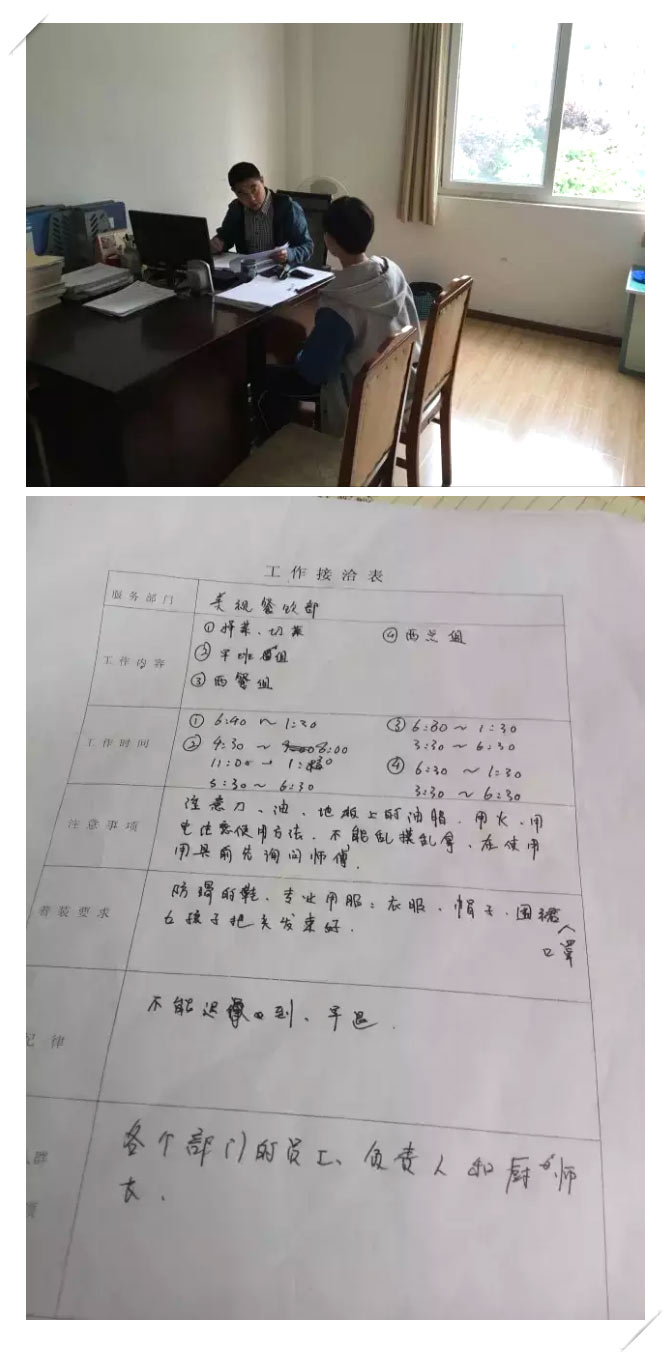 工作接洽表
服务部门
美视餐饮部
工作内容
①择菜、切菜 ④西点组
②早班组
③西餐组
工作时间
①6:40～1:30 ③6:30～1:30
②4:30～8:00 3:30～6:30
11:00～1:30 ④6:30～1:30
5:30～6:30 3:30～6:30
注意事项
注意刀、油、地板上的油脂、用火、用
电注意使用方法、不能乱摸乱拿、在使用
用具前先询问师傅.
着装要求
防滑的鞋、专业用服：衣服、帽子、围裙、口罩
女孩子把头发束好.
纪律
不能迟到、早退.
群
各个部门的员工、负责人和厨师
长.